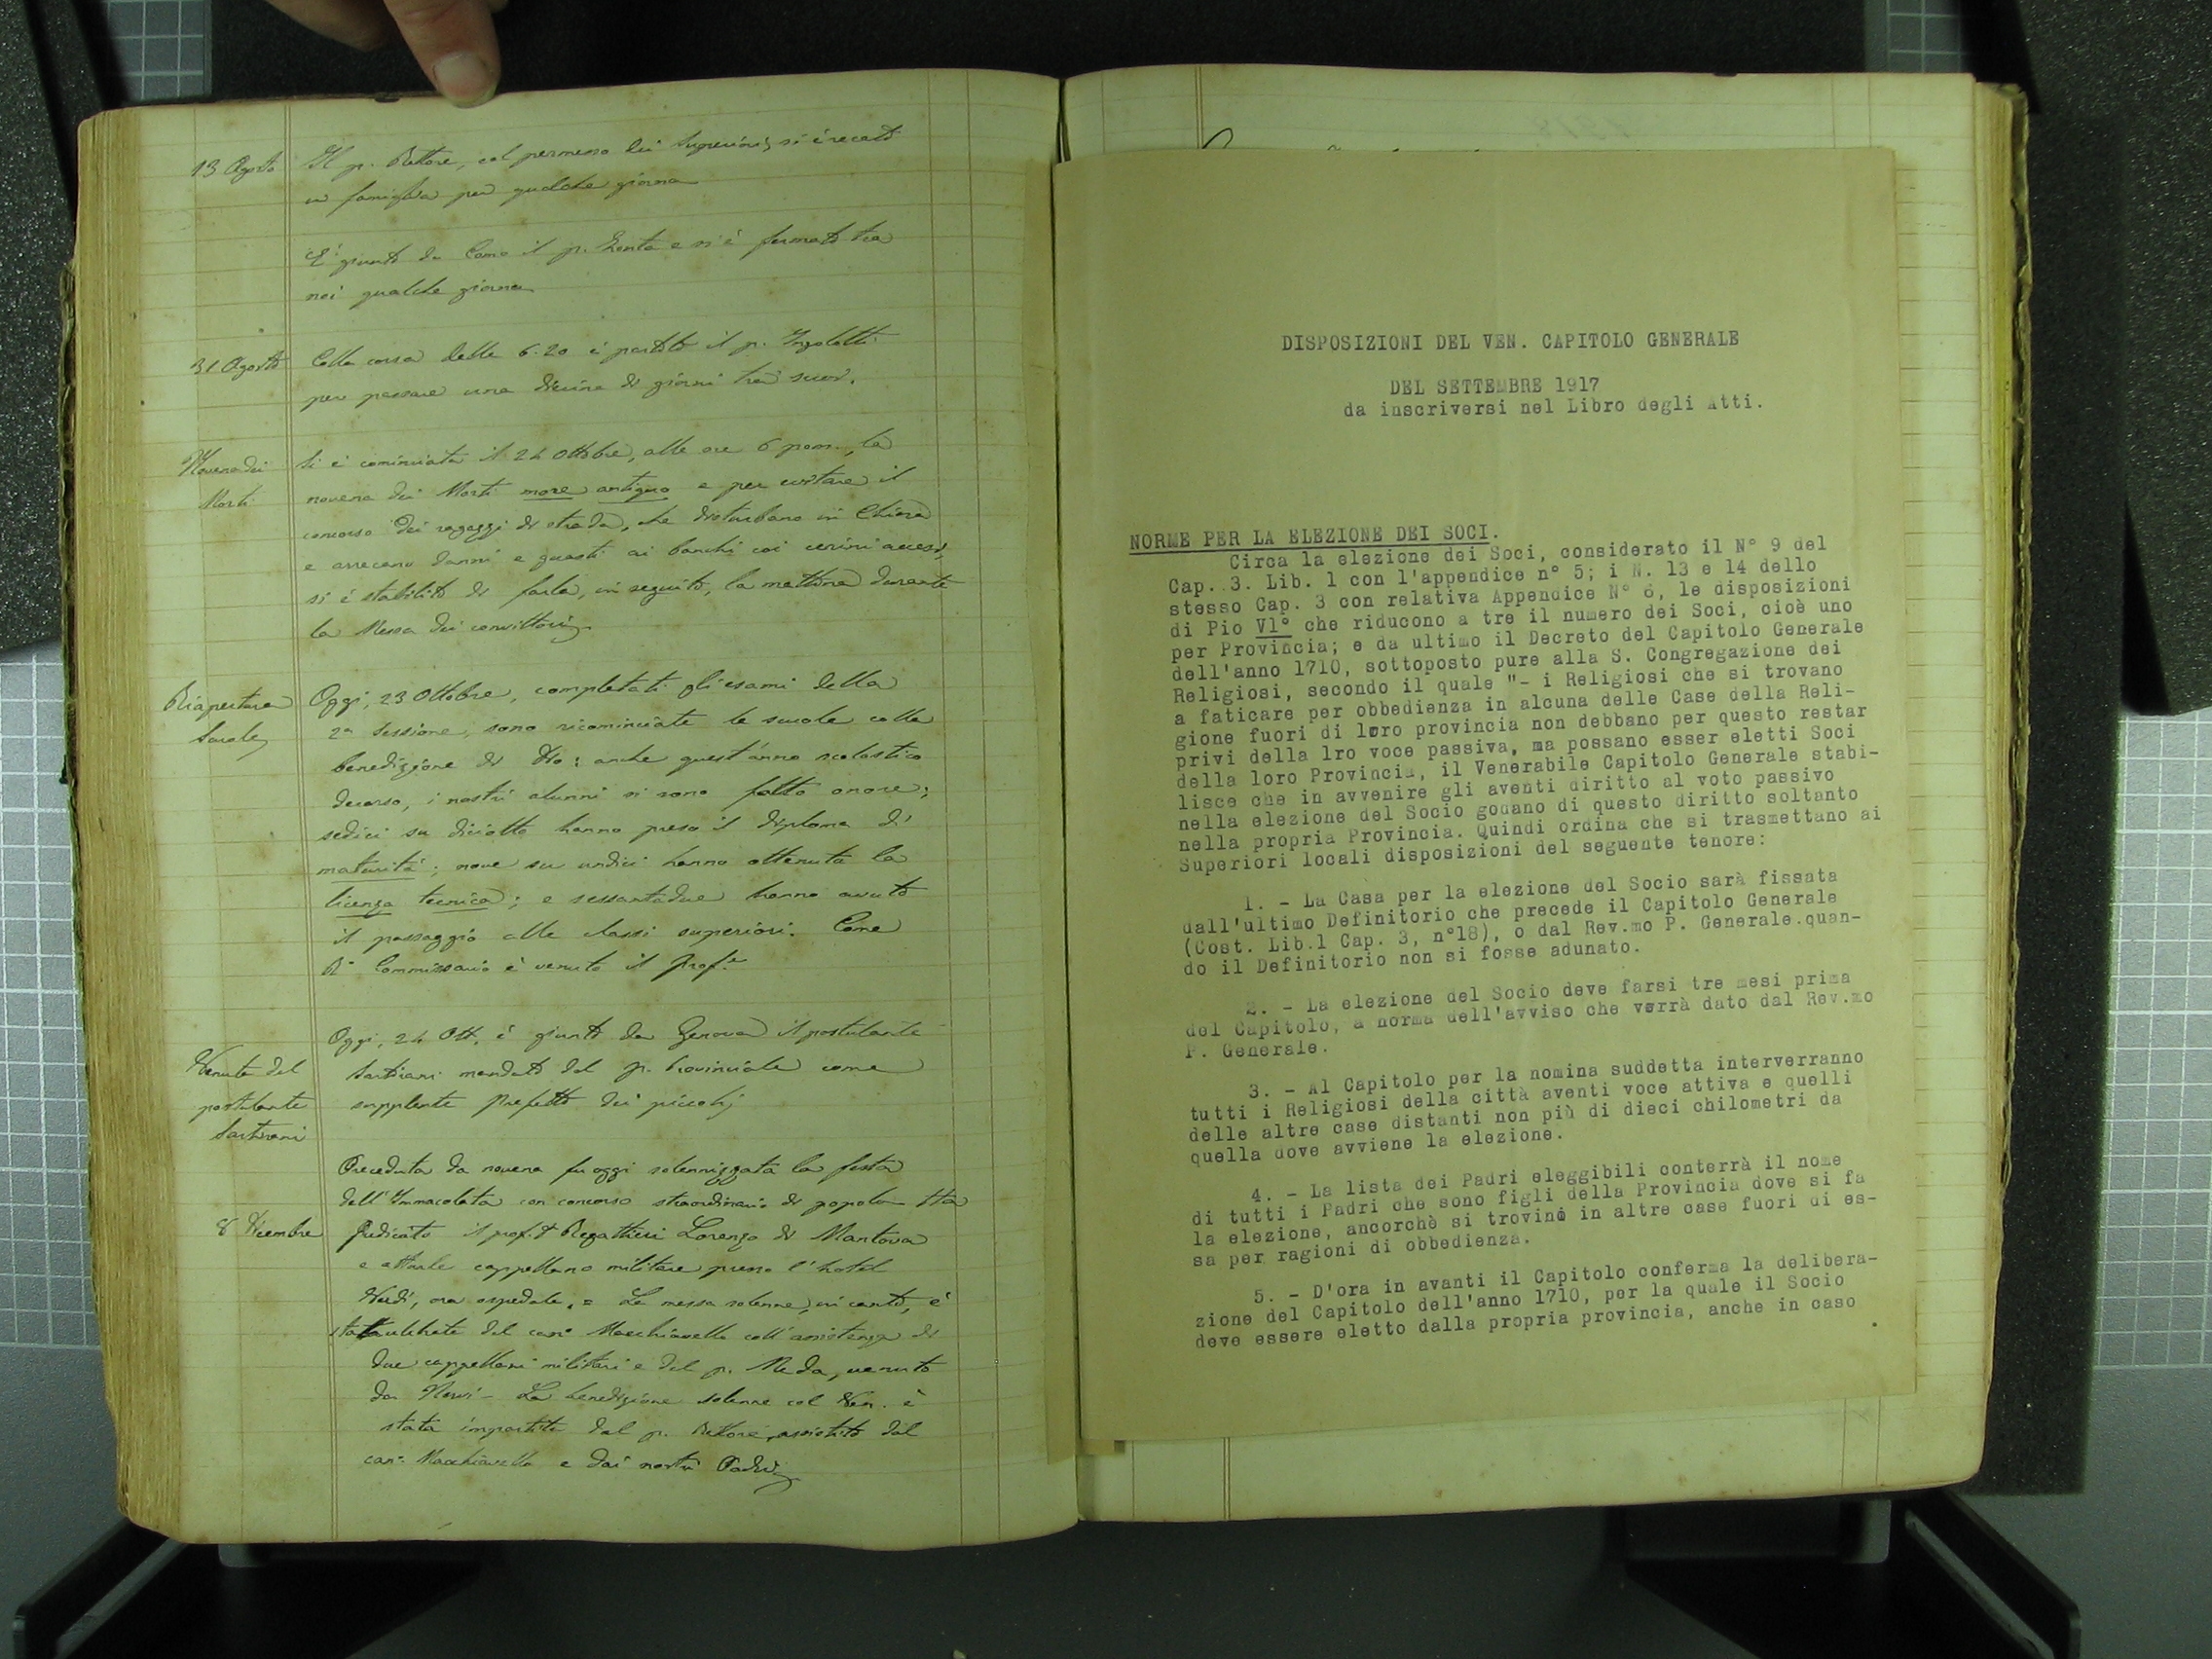 13 Agosto
Il p. Rettore, col permesso dei Superiori, si è recato
in famiglia per qualche giorno
E' giunto da Como il p. Zonta e si è fermato tra
noi qualche giorno
31 Agosto
Colla corsa delle 6.20 è partito il p.
per passare una diecina di giorni tra i suoi.
Novena dei
Morti
Si è cominciata il 24 Ottobre, alle ore 6 pom., la
novena dei Morti more antiquo e per evitare il
concorso dei ragazzi di strada, che disturbano in Chiesa
e arrecano danni e guasti ai banchi coi cerini accesi,
si è stabilito di farla, in seguito, la mattina durante
la Messa dei convittori
Riapertura
Scuole
Oggi, 23 Ottobre, completati gli esami della
2a sessione, sono ricominciate le scuole colla
benedizione di Dio: anche quest'anno scolastico
decorso, i nostri alunni si sono fatto onore;
sedici su diciotto hanno preso il diploma di
maturità; nove su undici hanno ottenuta la
licenza tecnica; e sessantadue hanno avuto
il passaggio alle classi superiori. Come
R° Commissario è venuto il Prof.e
Venuta del
postulante
Sartirani
Oggi, 24 Ott. è giunto da Genova il postulante
Sartirani mandato dal p. Provinciale come
supplente Prefetto dei piccoli
8 Dicembre
Preceduta da novena fu oggi solennizzata la festa
dell'Immacolata con concorso straordinario di popolo - Ha
predicato il prof. D. Regattieri Lorenzo di Mantova
e attuale cappellano militare presso l'hotel
Verdi, ora ospedale. = La messa solenne, in canto, è
stata celebrata dal can.o Macchiavello coll'assistenza di
due cappellani militari e del p. Meda, venuto
da Nervi - La benedizione solenne col Ven. è
stata impartita dal p. Rettore, assistito dal
can.o Macchiavello e dai nostri Padri
DISPOSIZIONI DEL VEN. CAPITOLO GENERALE
DEL SETTEMBRE 1917
da inscriversi nel Libro degli Atti.
NORME PER LA ELEZIONE DEI SOCI.
Circa la elezione dei Soci, considerato il N° 9 del
Cap. 3. Lib. 1 con l'appendice n° 5; i N. 13 e 14 dello
stesso Cap. 3 con relativa Appendice N° 6, le disposizioni
di Pio VI° che riducono a tre il numero dei Soci, cioè uno
per Provincia; e da ultimo il Decreto del Capitolo Generale
dell'anno 1710, sottoposto pure alla S. Congregazione dei
Religiosi, secondo il quale "- i Religiosi che si trovano
a faticare per obbedienza in alcuna delle Case della Reli-
gione fuori di loro provincia non debbano per questo restar
privi della lro voce passiva, ma possano esser eletti Soci
della loro Provincia, il Venerabile Capitolo Generale stabi-
lisce che in avvenire gli aventi diritto al voto passivo
nella elezione del Socio godano di questo diritto soltanto
nella propria Provincia. Quindi ordina che si trasmettano ai
Superiori locali disposizioni del seguente tenore:
1. - La Casa per la elezione del Socio sarà fissata
dall'ultimo Definitorio che precede il Capitolo Generale
(Cost. Lib.1 Cap. 3, n°18), o dal Rev.mo P. Generale.quan-
do il Definitorio non si fosse adunato.
2. - La elezione del Socio deve farsi tre mesi prima
del Capitolo, a norma dell'avviso che verrà dato dal Rev.mo
P. Generale.
3. - Al Capitolo per la nomina suddetta interverranno
tutti i Religiosi della città aventi voce attiva e quelli
delle altre case distanti non più di dieci chilometri da
quella dove avviene la elezione.
4. - La lista dei Padri eleggibili conterrà il nome
di tutti i Padri che sono figli della Provincia dove si fa
la elezione, ancorchè si trovino in altre case fuori di es-
sa per ragioni di obbedienza.
5. - D'ora in avanti il Capitolo conferma la delibera-
zione del Capitolo dell'anno 1710, per la quale il Socio
deve essere eletto dalla propria provincia, anche in caso